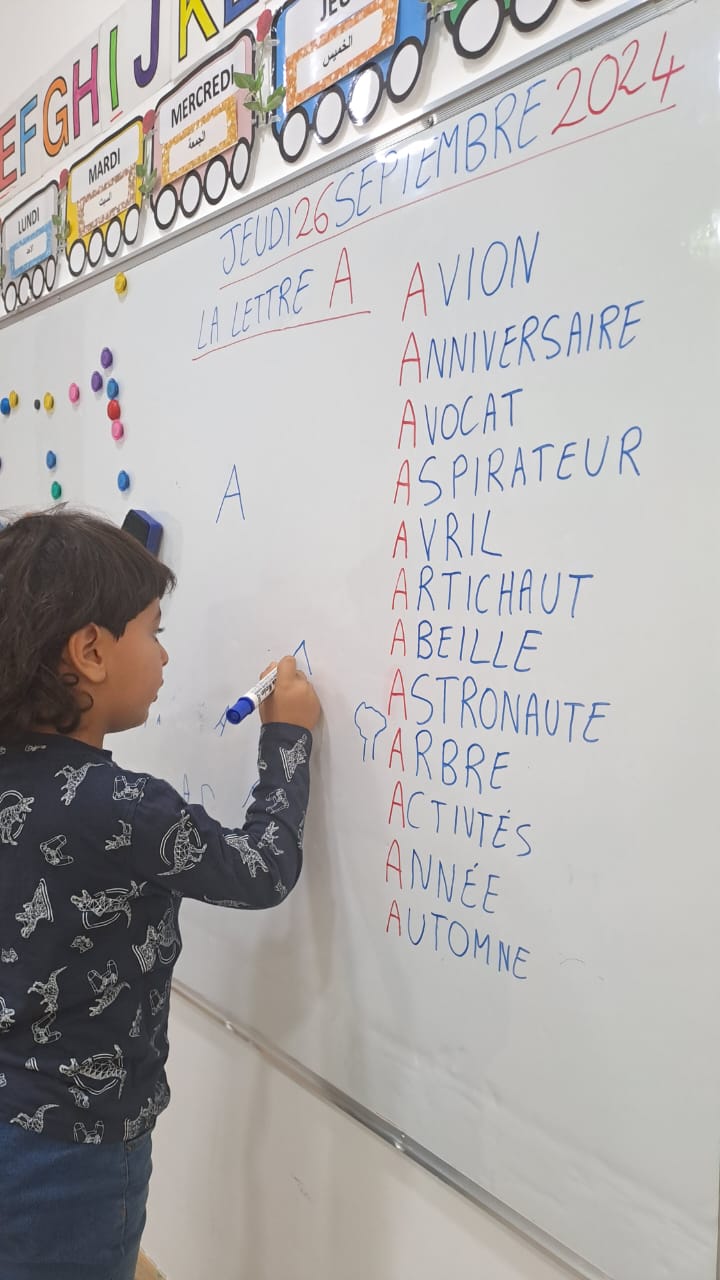 EFGHIJK
LUNDI
الأحد
MARDI
السبت
MERCREDI
الجمعة
JEU
الخميس
JEUDI 26 SEPTEMBRE 2024
LA LETTRE A
AVION
ANNIVERSAIRE
AVOCAT
ASPIRATEUR
AVRIL
ARTICHAUT
ABEILLE
ASTRONAUTE
ARBRE
ACTIVITÉS
ANNÉE
AUTOMNE
A